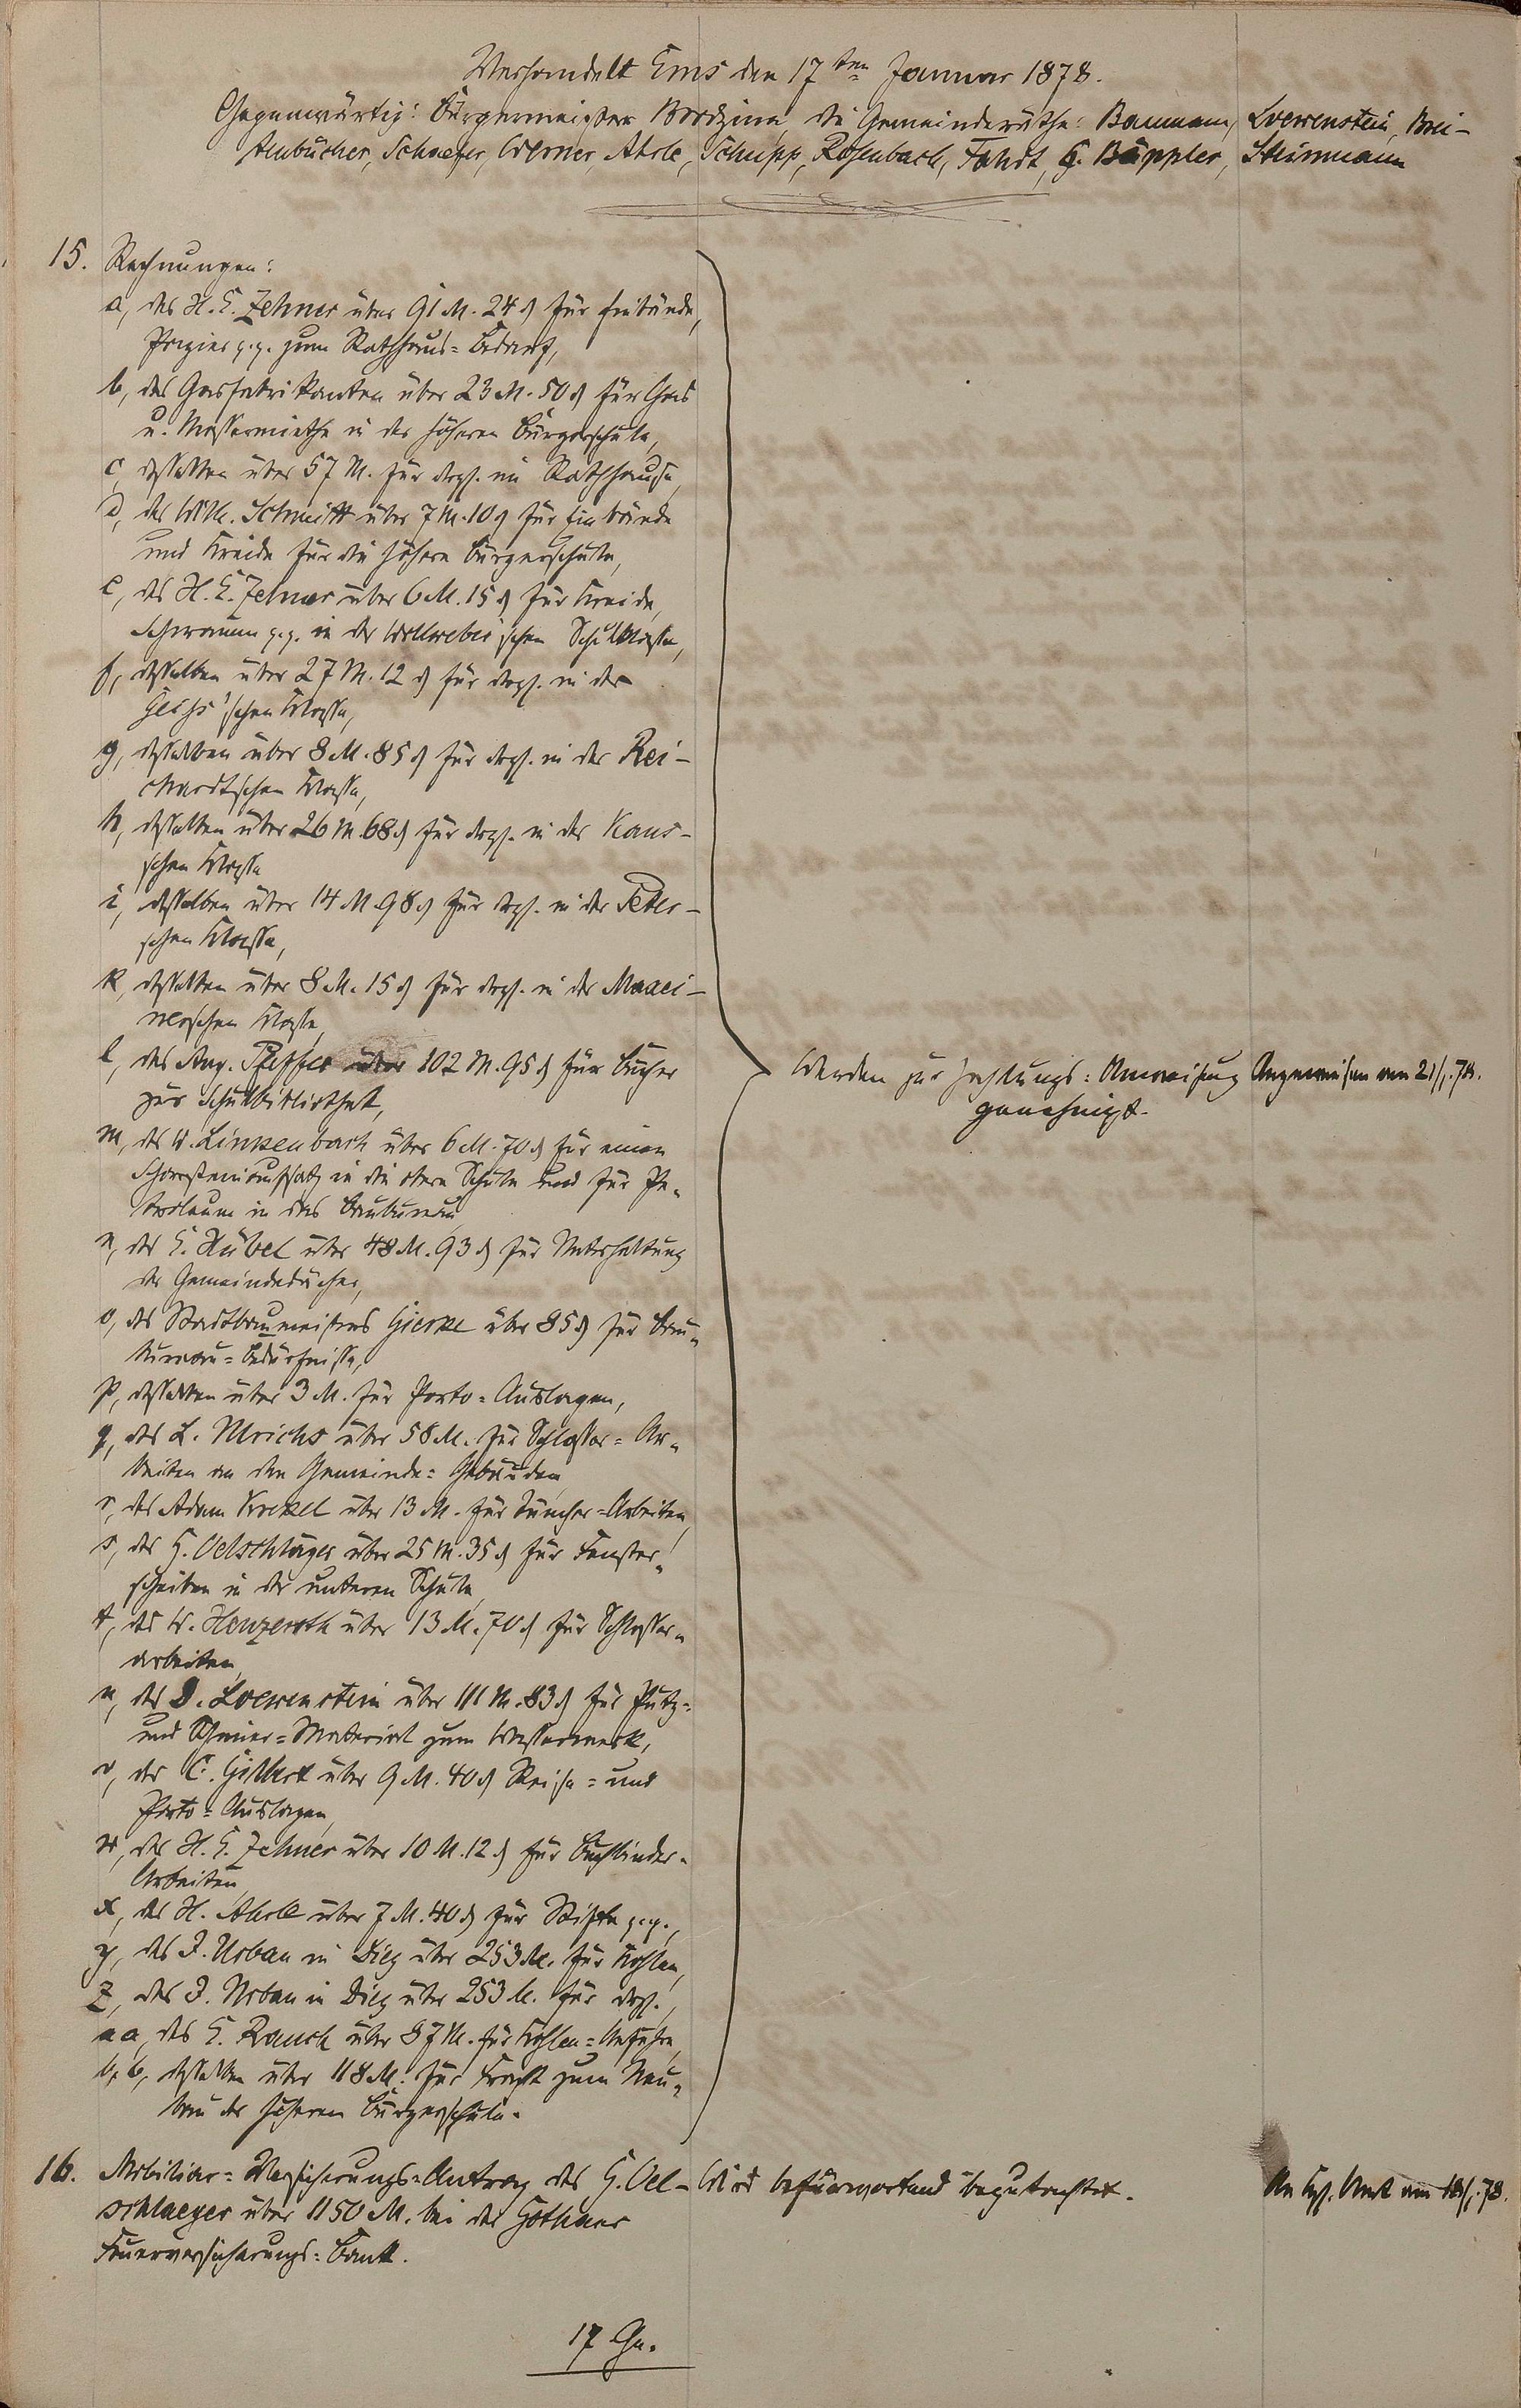 Verhandelt Ems den 17ten Januar 1878.
Gegenwärtig: Bürgermeister die Gemeinderäthe: Baumann, Loewenstein, Brei-
tenbücher, Schaefer, Werner, Ahrle, Schupp, Rosenbach, Fahdt, G. Bäppler, Steinmann
15. Rechnungen:
a, des H. E. Zehner über 91 M. 24 ₰ für Einbände,
Papier p.p. zum Rathhaus=Bedarf,
b, des Gasfabrikanten über 23 M. 50 ₰ für Gas
u. Messermiethe in der höheren Bürgerschule,
c, desselben über 57 M. für desgl. im Rathhause,
d, des Wilh. Schmitt über 7 M. 10 ₰ für Einbände
und Kreide für die höhere Bürgerschule,
e, des H. E. Zehner über 6 M. 15 ₰ für Kreide,
Schwamm p.p. in der Wollweber'schen Schulklasse,
f, desselben über 27 M. 12 ₰ für desgl. in der
'schen Klasse,
g, desselben über 8 M. 85 ₰ für desgl. in der Rei-
chardtschen Klasse,
h, desselben über 26 M. 68 ₰ für desgl. in der Kaus-
schen Klasse
i, desselben über 14 M. 98 ₰ für desgl. in der Peter-
schen Klasse,
k, desselben über 8 M. 15 ₰ für desgl. in der Maxei-
nerschen Klasse,
l, des Aug. Pfeffer über 102 M. 95 ₰ für Bücher
zur Schulbibliothek,
m, des W. Linkenbach über 6 M. 70 ₰ für einen
Schornsteinaufsatz in die obere Schule und für Pe-
troleum in das Baubureau
n, des E. Hübel über 48 M. 93 ₰ für Unterhaltung
der Gemeindedächer,
o, des Stadtbaumeisters Gierke über 85 ₰ für Bau-
bureau=Bedürfnisse,
p, desselben über 3 M. für Porto=Auslagen,
q, des L. Ulrichs über 58 M. für Schlosser=Ar-
beiten an den Gemeinde=Gebäuden,
r, des Adam über 13 M. für Tüncher=Arbeiten,
s, des G. Oelschläger über 25 M. 35 ₰ für Fenster-
scheiben in der unteren Schule,
t, des W. Henzeroth über 13 M. 70 ₰ für Schlosser-
arbeiten,
u, des D. Loewenstein über 111 M. 83 ₰ für Putz=
und Schmier=Material zum Wasserwerk,
v, des C. Gilbert über 9 M. 40 ₰ Reise= und
Porto=Auslagen,
w, des H. E. Zehner über 10 M. 12 ₰ für Buchbinder-
Arbeiten,
x, des H. Ahrle über 7 M. 40 ₰ für Stifte p.p.,
y, des J. Urban in Diez über 253 M. für Kohlen,
z, des J. Urban in Diez über 253 M. für desgl.,
aa, des E. Rauch über 87 M. für Kohlen=Anfuhr,
b,b, desselben über 118 M. für Fracht zum Neu-
bau der höheren Bürgerschule.
Werden zur Zahlungs=Anweisung
genehmigt.
Angewiesen am 21/1.78.
16. Mobiliar=Versicherungs=Antrag des G. Oel-
schlaeger über 1150 M. bei der Gothaer
Feuerversicherungs=Bank.
Wird befürwortend begutachtet.
An Kgl. Amt am 18/1.78.